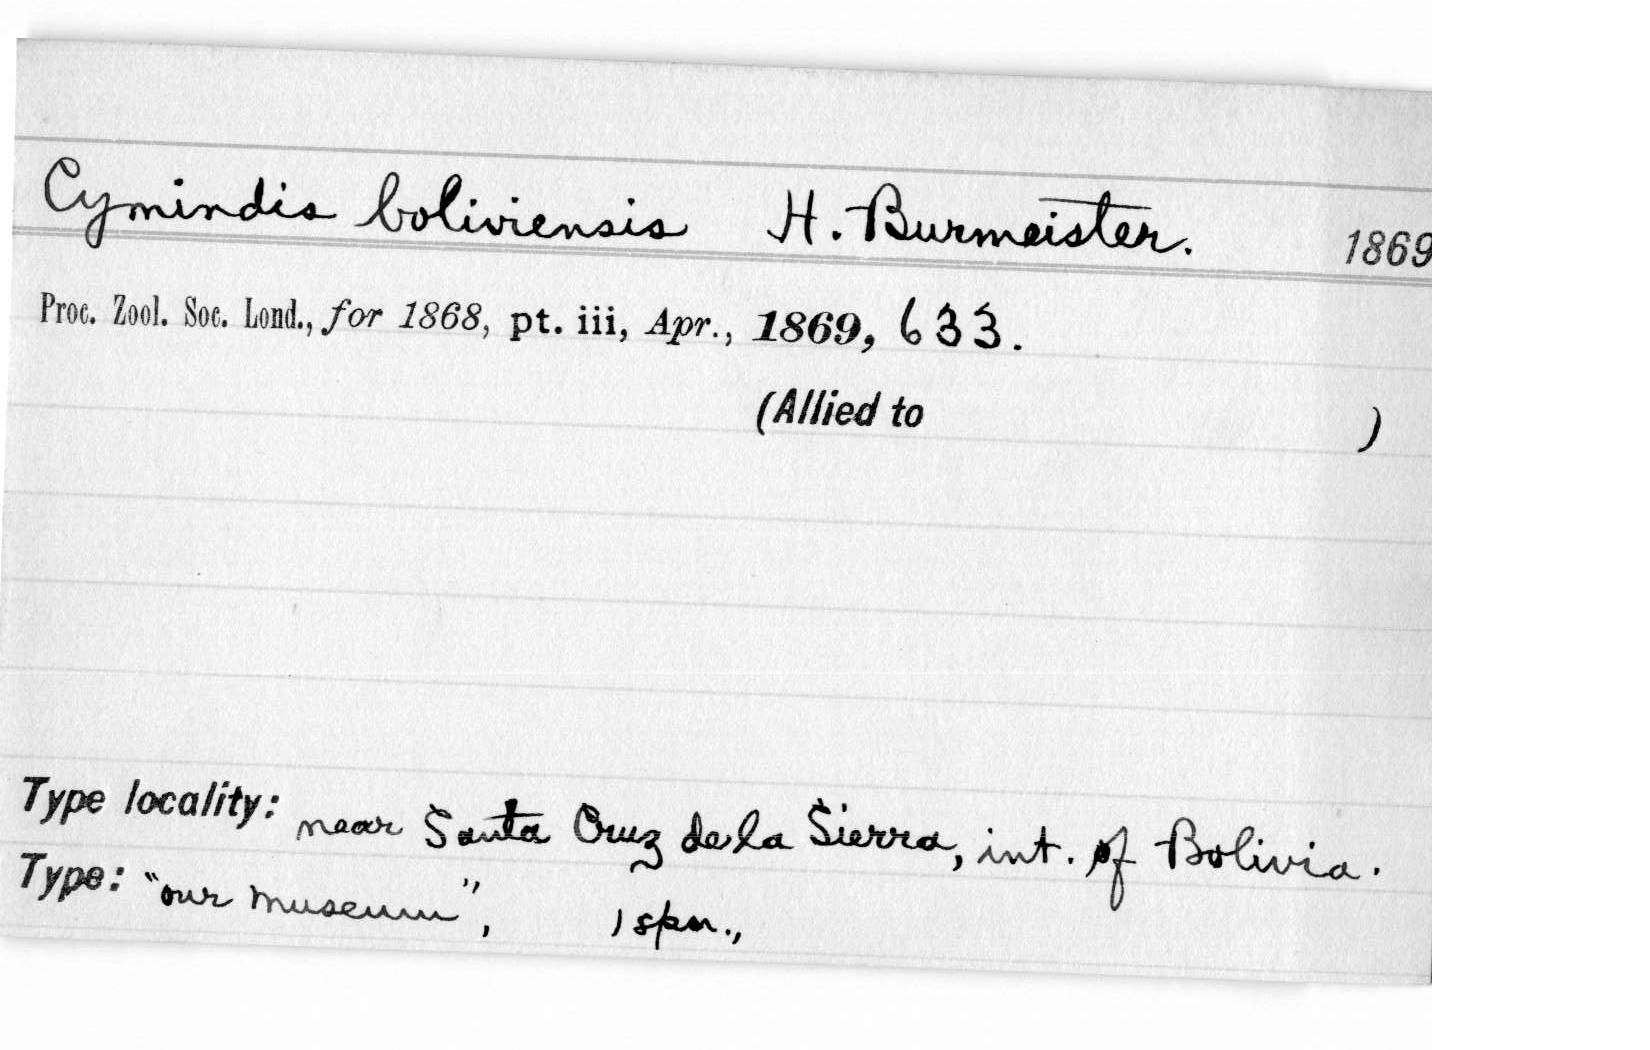 Cymindis boliviensis H. Burmeister. 1869
Proc. Zool. Soc. Lond., for 1868, pt. iii, Apr., 1869, 633.
(Allied to )
Type locality: near Santa Cruz de la Sierra, int. of Bolivia.
Type: "our museum", 1 spm.,